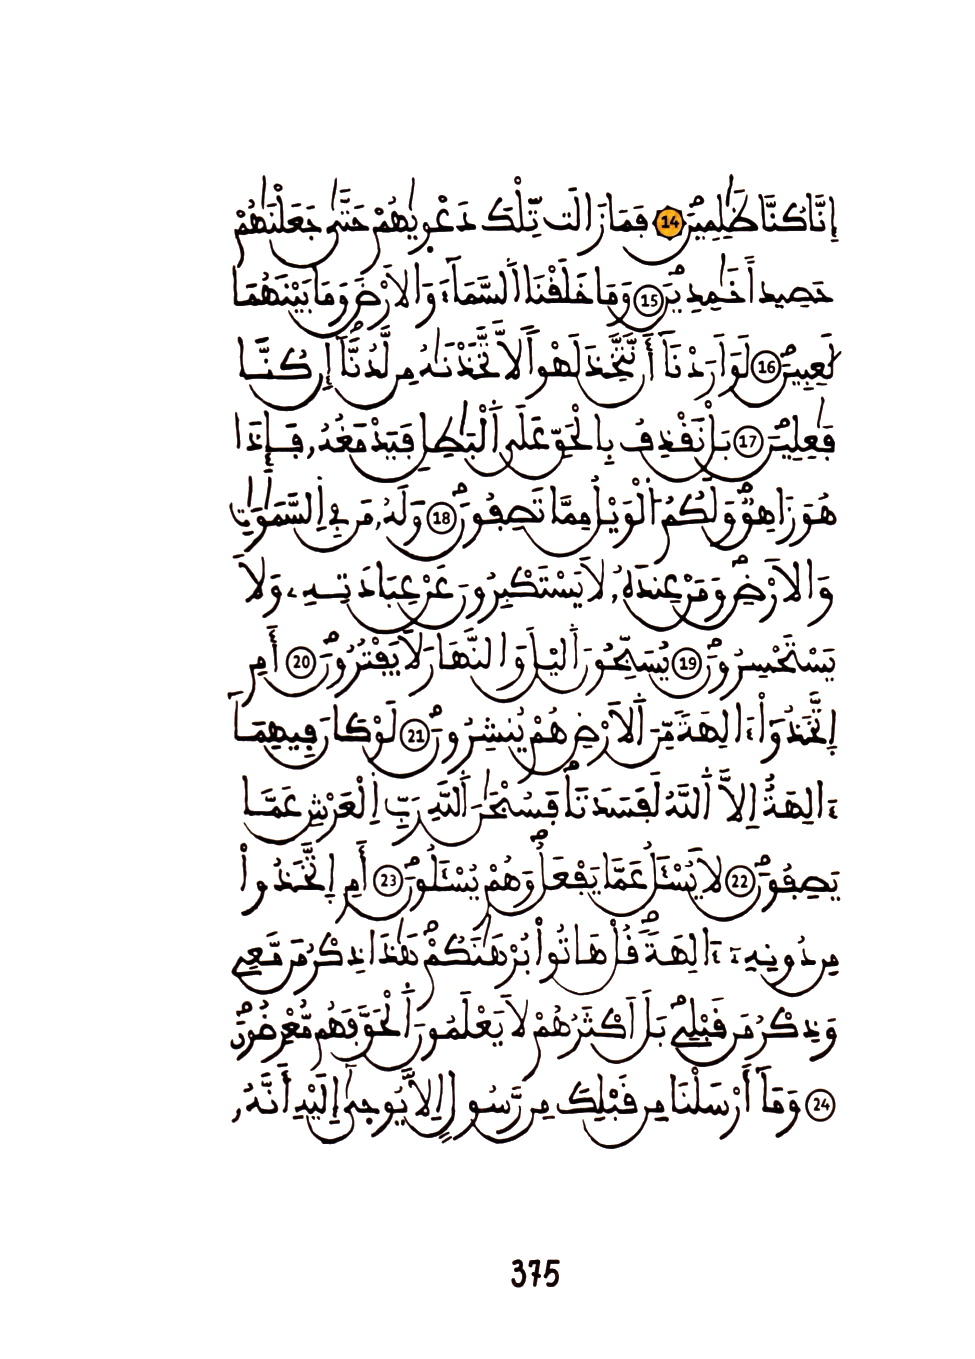 إِنَّا كُنَّا ظَٰلِمِينَ 14 فَمَا زَالَت تِّلْكَ دَعْوٜيٰهُمْ حَتَّىٰ جَعَلْنَٰهُمْ
حَصِيداً خَٰمِدِينَ 15 وَمَا خَلَقْنَا اَ۬لسَّمَآءَ وَالَارْضَ وَمَا بَيْنَهُمَا
لَٰعِبِينَ 16 لَوَ اَرَدْنَآ أَن نَّتَّخِذَ لَهْواٗ لَّاتَّخَذْنَٰهُ مِن لَّدُنَّآ إِن كُنَّا
فَٰعِلِينَ 17 بَلْ نَقْذِفُ بِالْحَقِّ عَلَى اَ۬لْبَٰطِلِ فَيَدْمَغُهُۥ فَإِذَا
هُوَ زَاهِقٞ وَلَكُمُ اُ۬لْوَيْلُ مِمَّا تَصِفُونَ 18 وَلَهُۥ مَن فِي اِ۬لسَّمَٰوَٰتِ
وَالَارْضِ وَمَنْ عِندَهُۥ لَا يَسْتَكْبِرُونَ عَنْ عِبَادَتِهِۦ وَلَا
يَسْتَحْسِرُونَ 19 يُسَبِّحُونَ اَ۬ليْلَ وَالنَّهَارَ لَا يَفْتُرُونَ 20 أَمِ
اِ۪تَّخَذُوٓاْ ءَالِهَةٗ مِّنَ اَ۬لَارْضِ هُمْ يُنشِرُونَ 21 لَوْ كَانَ فِيهِمَآ
ءَالِهَةٌ اِلَّا اَ۬للَّهُ لَفَسَدَتَا فَسُبْحَٰنَ اَ۬للَّهِ رَبِّ اِ۬لْعَرْشِ عَمَّا
يَصِفُونَ 22 لَا يُسْـَٔلُ عَمَّا يَفْعَلُ وَهُمْ يُسْـَٔلُونَ 23 أَمِ اِ۪تَّخَذُواْ
مِن دُونِهِۦٓ ءَالِهَةٗ قُلْ هَاتُواْ بُرْهَٰنَكُمْ هَٰذَا ذِكْرُ مَن مَّعِي
وَذِكْرُ مَن قَبْلِي بَلَ اَكْثَرُهُمْ لَا يَعْلَمُونَ اَ۬لْحَقَّ فَهُم مُّعْرِضُونَ
24 وَمَآ أَرْسَلْنَا مِن قَبْلِكَ مِن رَّسُولٍ اِلَّا يُوحَىٰٓ إِلَيْهِ أَنَّهُۥ
375